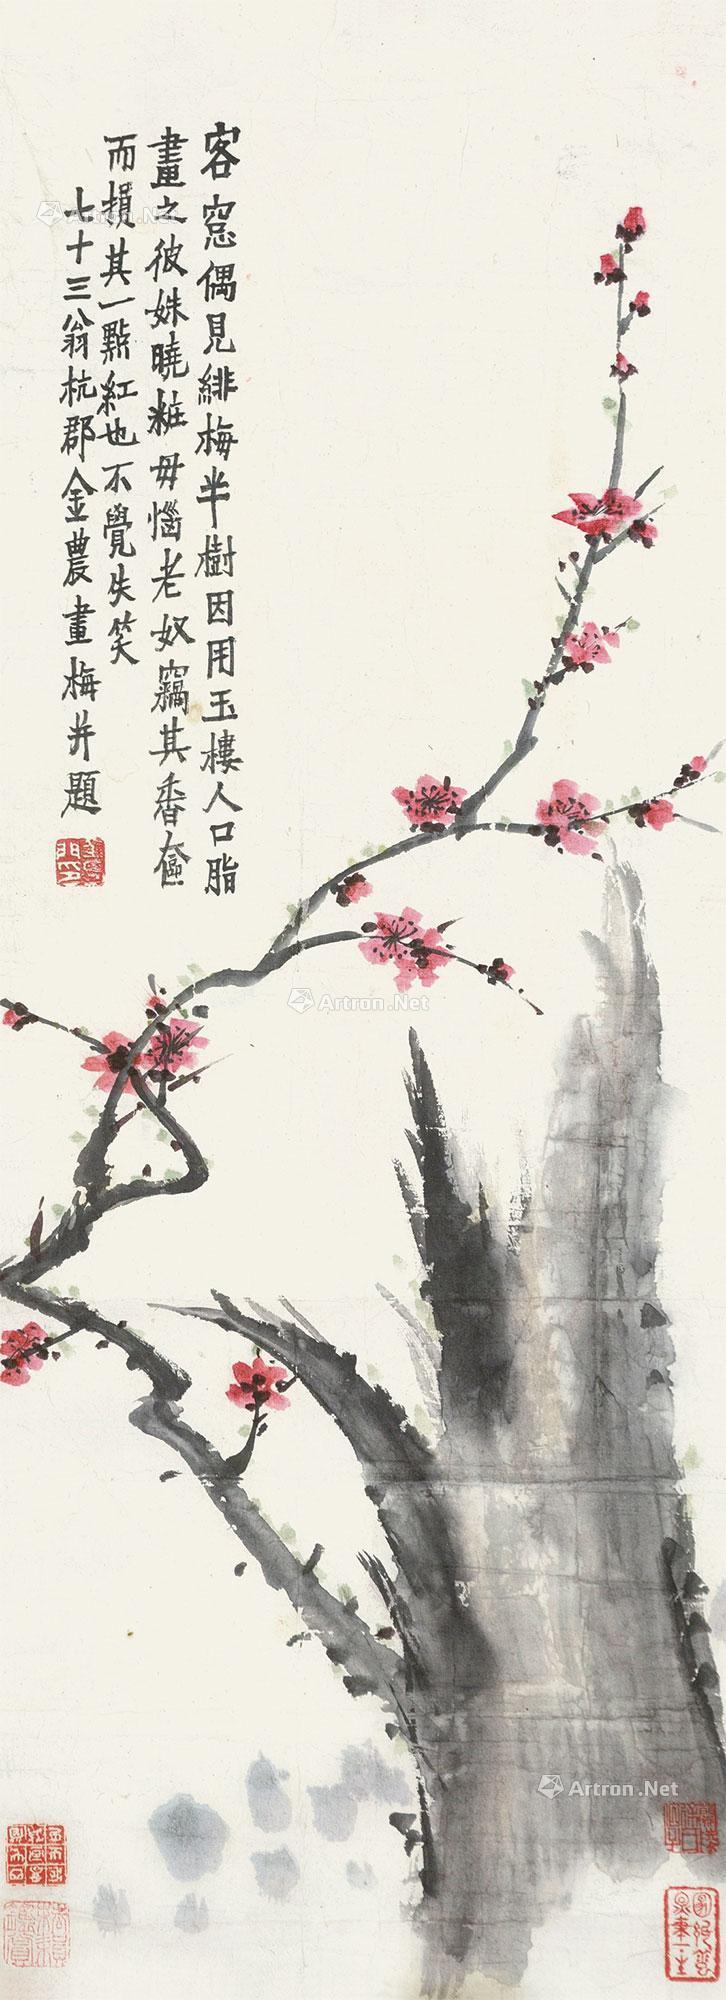 客窓偶見緋梅半樹因用玉樓人口脂
畫之彼姝曉粧毋惱老奴竊其香奩
而損其一點紅也不覺失笑
七十三翁杭郡金農畫梅并題
Artron.Net
Artron.Net
Artron.Net